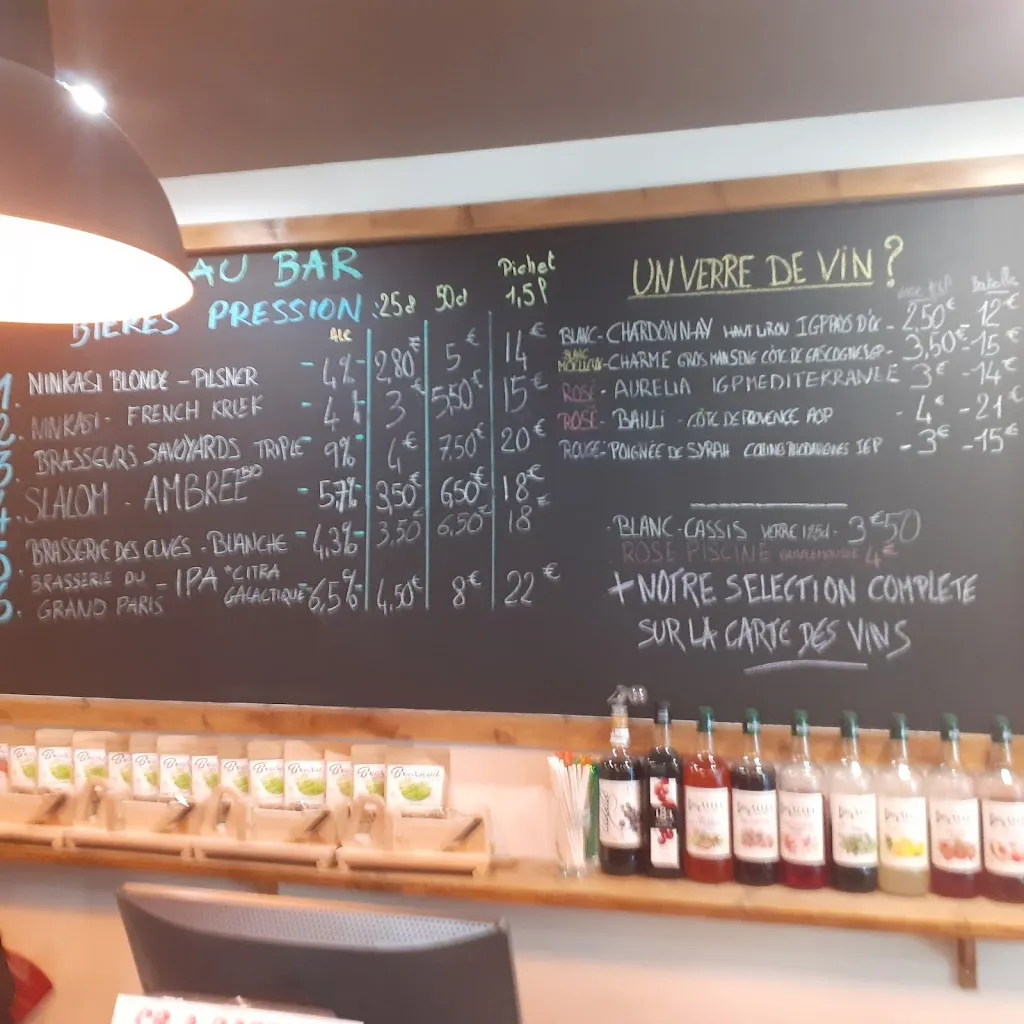 AU BAR
BIÈRES PRESSION : 25cl 50cl Pichet 1,5l
Alc
1. NINKASI BLONDE - PILSNER - 4% - 2,80€ 5€ 14€
2. NINKASI - FRENCH KRIEK - 4% - 3€ 5,50€ 15€
3. BRASSEURS SAVOYARDS TRIPLE - 9% - 4€ 7.50€ 20€
4. SLALOM - AMBRÉE BIO - 5,7% - 3,50€ 6,50€ 18€
5. BRASSERIE DES CUVES - BLANCHE - 4,3% - 3,50 6,50€ 18€
6. BRASSERIE DU GRAND PARIS - IPA *CITRA GALACTIQUE - 6,5% - 4,50€ 8€ 22€
UN VERRE DE VIN ?
Bouteille
BLANC - CHARDONNAY IGP PAYS D'OC - 2,50€ - 12€
BLANC MOELLEUX - CHARME GROS MANSENG CÔTE DE GASCOGNE IGP - 3,50€ - 15€
ROSÉ - AURELIA IGP MEDITERRANÉE 3€ - 14€
ROSÉ - BAILLI - CÔTE DE PROVENCE AOP - 4€ - 21€
ROUGE - POIGNÉE DE SYRAH COLLINES RHODANIENNES IGP - 3€ - 15€
BLANC - CASSIS VERRE 12,5cl - 3€50
ROSÉ PISCINE 4€
+ NOTRE SELECTION COMPLETE
SUR LA CARTE DES VINS